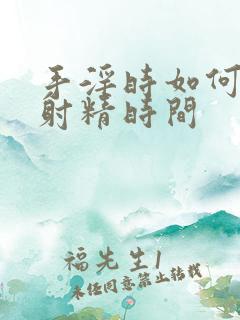 手淫時如何
射精時間
福先生1
未任同意禁止转载